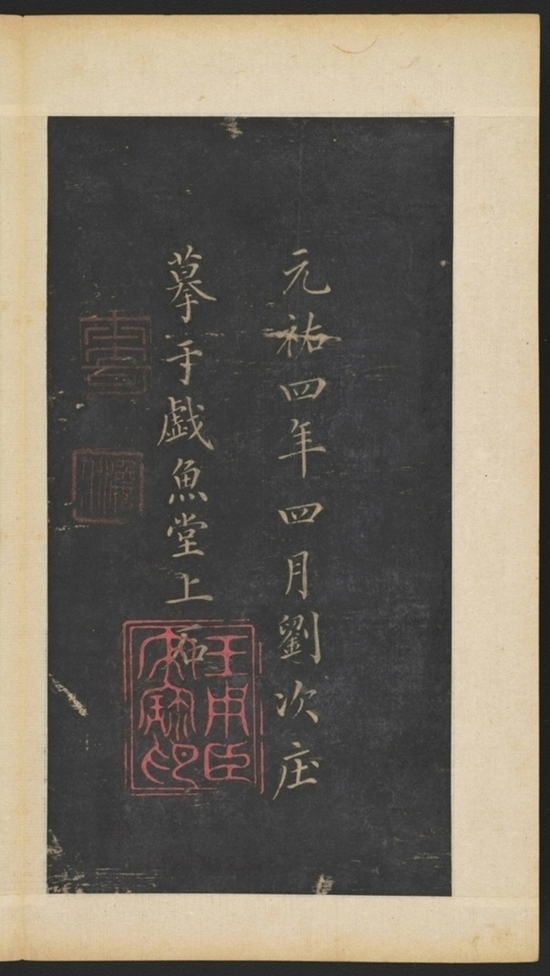 元祐四年四月劉次庄
摹于戲魚堂上石